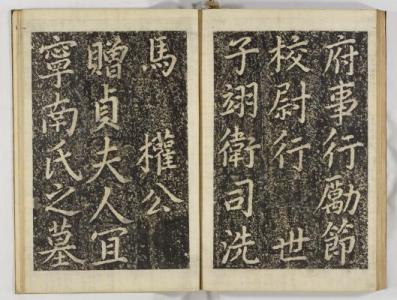 府事行勵節
校尉行 世
子翊衛司洗
馬 權公
贈貞夫人宜
寧南氏之墓